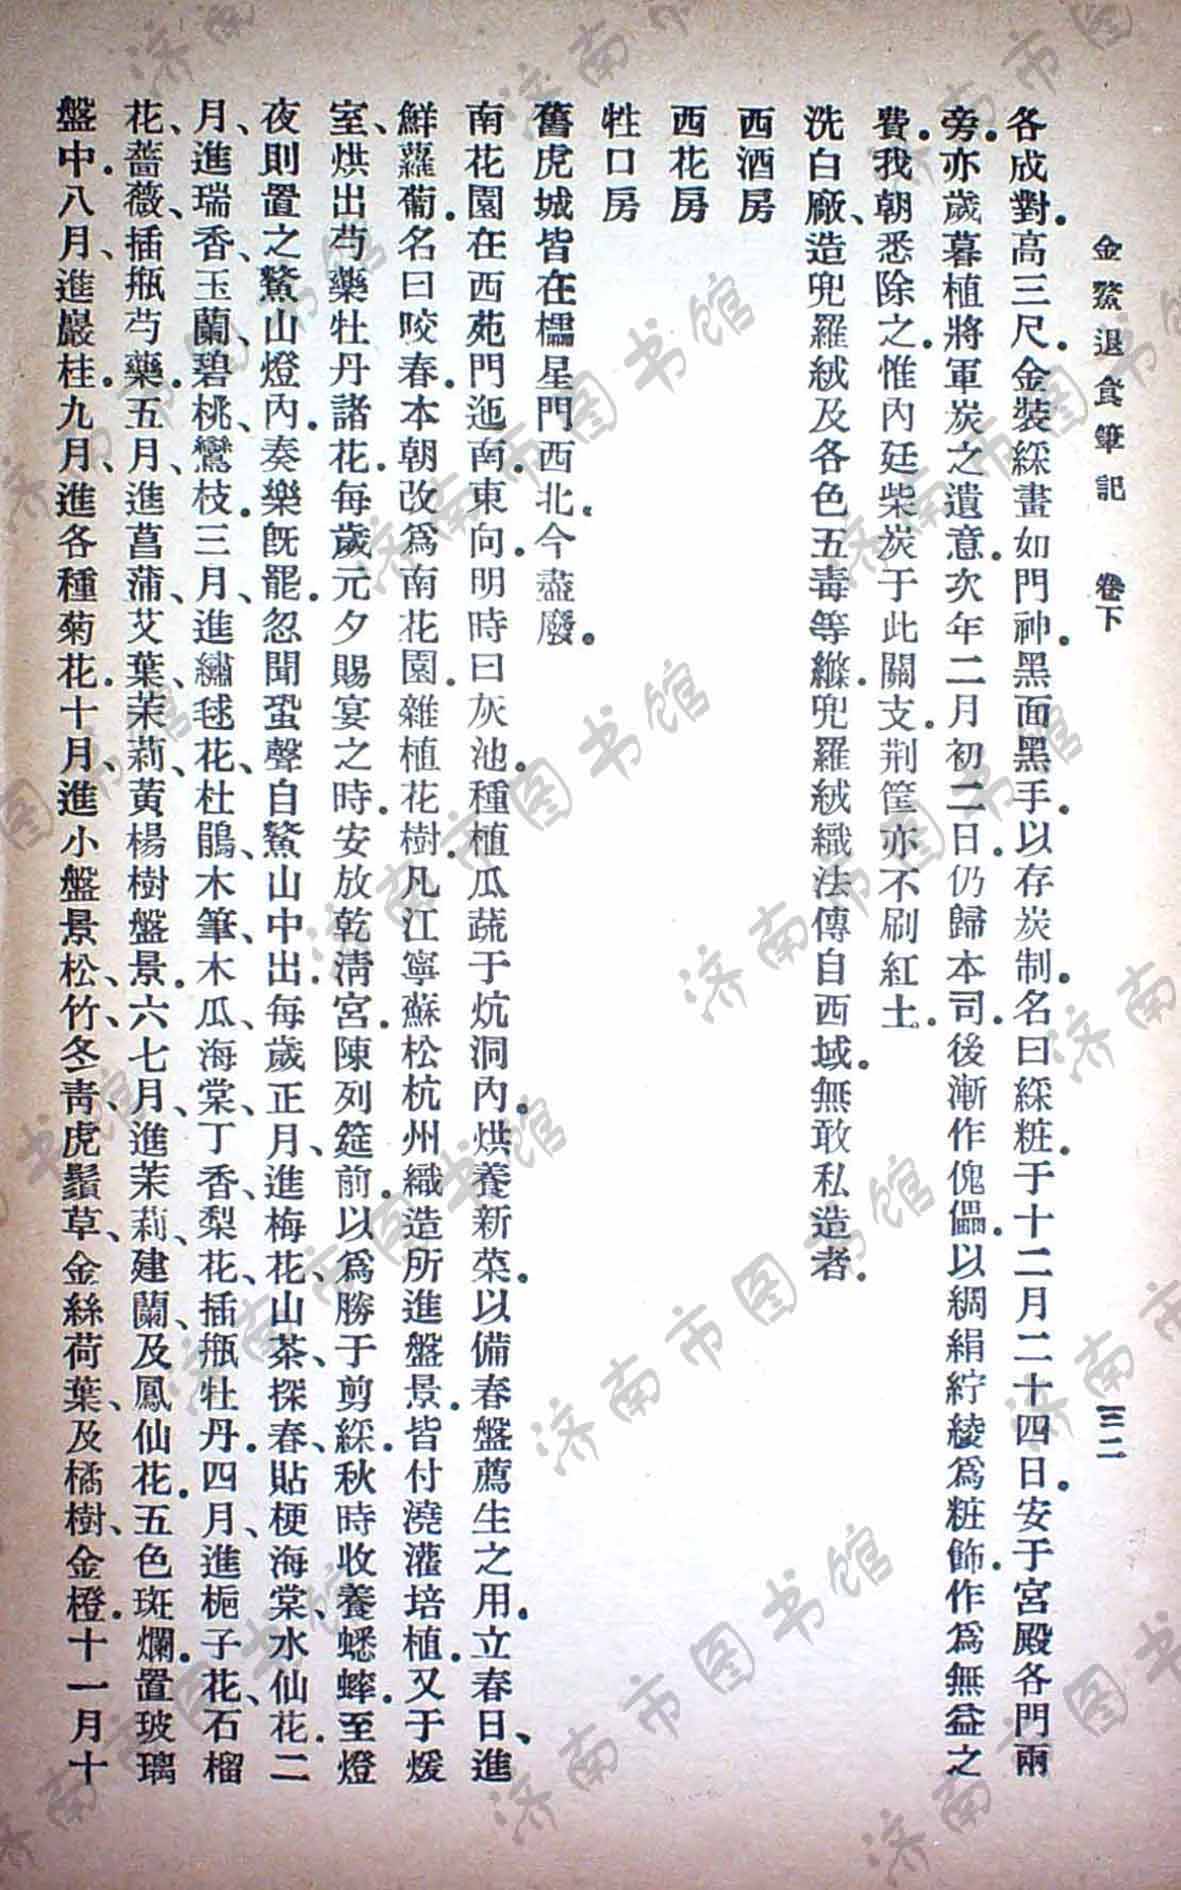 金鰲退食筆記　卷下　三二
各成對。高三尺。金裝綵畫如門神。黑面黑手。以存炭制。名曰綵粧。于十二月二十四日。安于宮殿各門兩
旁。亦歲暮植將軍炭之遺意。次年二月初二日。仍歸本司。後漸作傀儡。以綢絹紵綾爲粧飾。作爲無益之
費。我朝悉除之。惟內廷柴炭于此關支。荆筐亦不刷紅土。
洗白廠、造兜羅絨及各色五毒等縧。兜羅絨織法傳自西域。無敢私造者。
西酒房
西花房
牲口房
舊虎城皆在櫺星門西北。今盡廢。
南花園在西苑門迤南。東向。明時曰灰池。種植瓜蔬于炕洞內。烘養新菜。以備春盤薦生之用。立春日、進
鮮蘿蔔。名曰咬春。本朝改爲南花園。雜植花樹。凡江寧蘇松杭州織造所進盤景。皆付澆灌培植。又于煖
室、烘出芍藥牡丹諸花。每歲元夕賜宴之時。安放乾淸宮。陳列筵前。以爲勝于剪綵。秋時收養蟋蟀。至燈
夜則置之鰲山燈內。奏樂旣罷。忽聞蛩聲自鰲山中出。每歲正月、進梅花、山茶、探春、貼梗海棠、水仙花。二
月、進瑞香、玉蘭、碧桃、鸞枝。三月、進繡毬花、杜鵑、木筆、木瓜、海棠、丁香、梨花、插瓶牡丹。四月、進梔子花、石榴
花、薔薇、插瓶芍藥。五月、進菖蒲、艾葉、茉莉、黃楊樹盤景。六七月、進茉莉、建蘭、及鳳仙花。五色斑斕。置玻璃
盤中。八月、進巖桂。九月、進各種菊花。十月、進小盤景、松、竹、冬靑、虎鬚草、金絲荷葉、及橘樹、金橙。十一月十
济南市图书馆